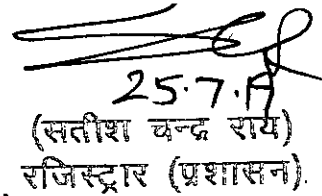 25.7.19
(सतीश चन्द्र राय)
रजिस्ट्रार (प्रशासन).